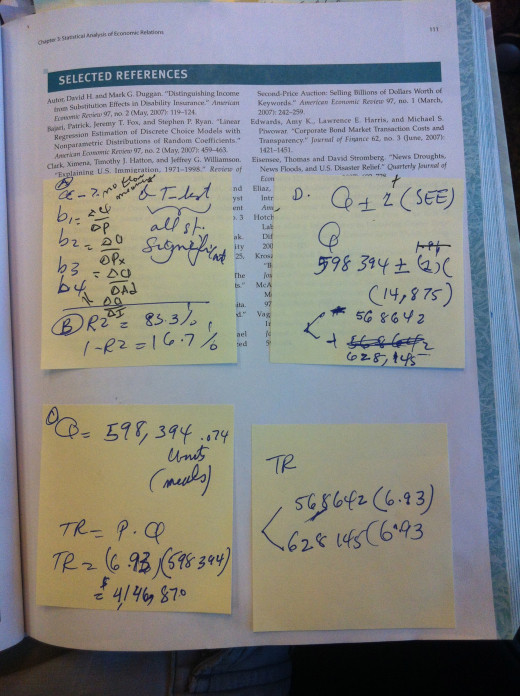 Chapter 3: Statistical Analysis of Economic Relations
111
SELECTED REFERENCES
Autor, David H. and Mark G. Duggan. "Distinguishing Income
from Substitution Effects in Disability Insurance." American
Economic Review 97, no. 2 (May, 2007): 119–124.
Bajari, Patrick, Jeremy T. Fox, and Stephen P. Ryan. "Linear
Regression Estimation of Discrete Choice Models with
Nonparametric Distributions of Random Coefficients."
American Economic Review 97, no. 2 (May, 2007): 459–463.
Clark, Ximena, Timothy J. Hatton, and Jeffrey G. Williamson.
"Explaining U.S. Immigration, 1971–1998." Review of
Second-Price Auction: Selling Billions of Dollars Worth of
Keywords." American Economic Review 97, no. 1 (March,
2007): 242–259.
Edwards, Amy K., Lawrence E. Harris, and Michael S.
Piwowar. "Corporate Bond Market Transaction Costs and
Transparency." Journal of Finance 62, no. 3 (June, 2007):
1421–1451.
Eisensee, Thomas and David Stromberg. "News Droughts,
News Floods, and U.S. Disaster Relief." Quarterly Journal of
Eliaz,
A
no
meaning
b1 = ΔQ
ΔP
b2 = ΔQ
ΔPx
b3 = ΔQ
ΔAd
b4 = ΔQ
ΔI
T-test
all st.
Significant
B R2 = 83.3%
1-R2 = 16.7%
D. Q ± 2 (SEE)
Q
598 394 ± (2)(
(14,875)
568642
+ 568642
628,145
C Q = 598,394.074
Units
(meals)
TR = P.Q
TR = (6.93)(598394)
= $4,146,870
TR
568642 (6.93)
628145 (6.93